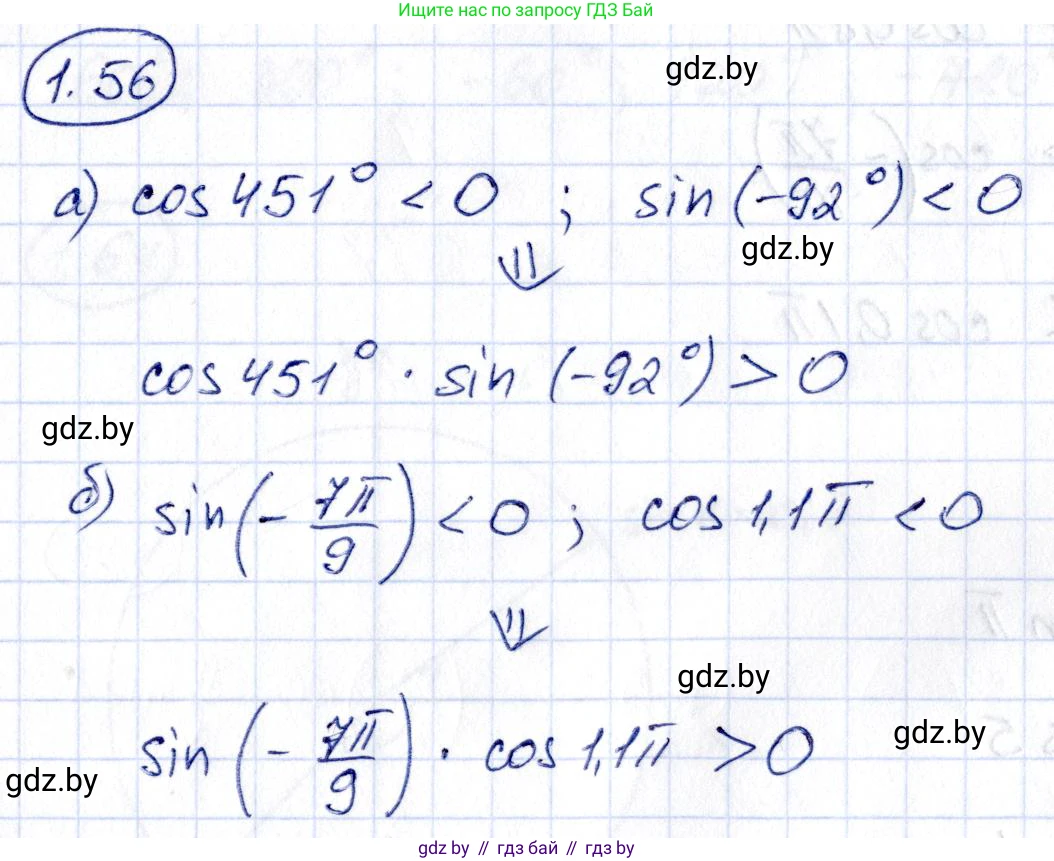 Ищите нас по запросу ГДЗ Бай
1.56
gdz.by
а) cos 451° < 0 ; sin (-92°) < 0
gdz.by
⇓
cos 451° · sin (-92°) > 0
gdz.by
б) sin(-7π/9) < 0 ; cos 1,1π < 0
⇓
gdz.by
sin(-7π/9) · cos 1,1π > 0
gdz.by
gdz.by
gdz.by // гдз бай // gdz.by